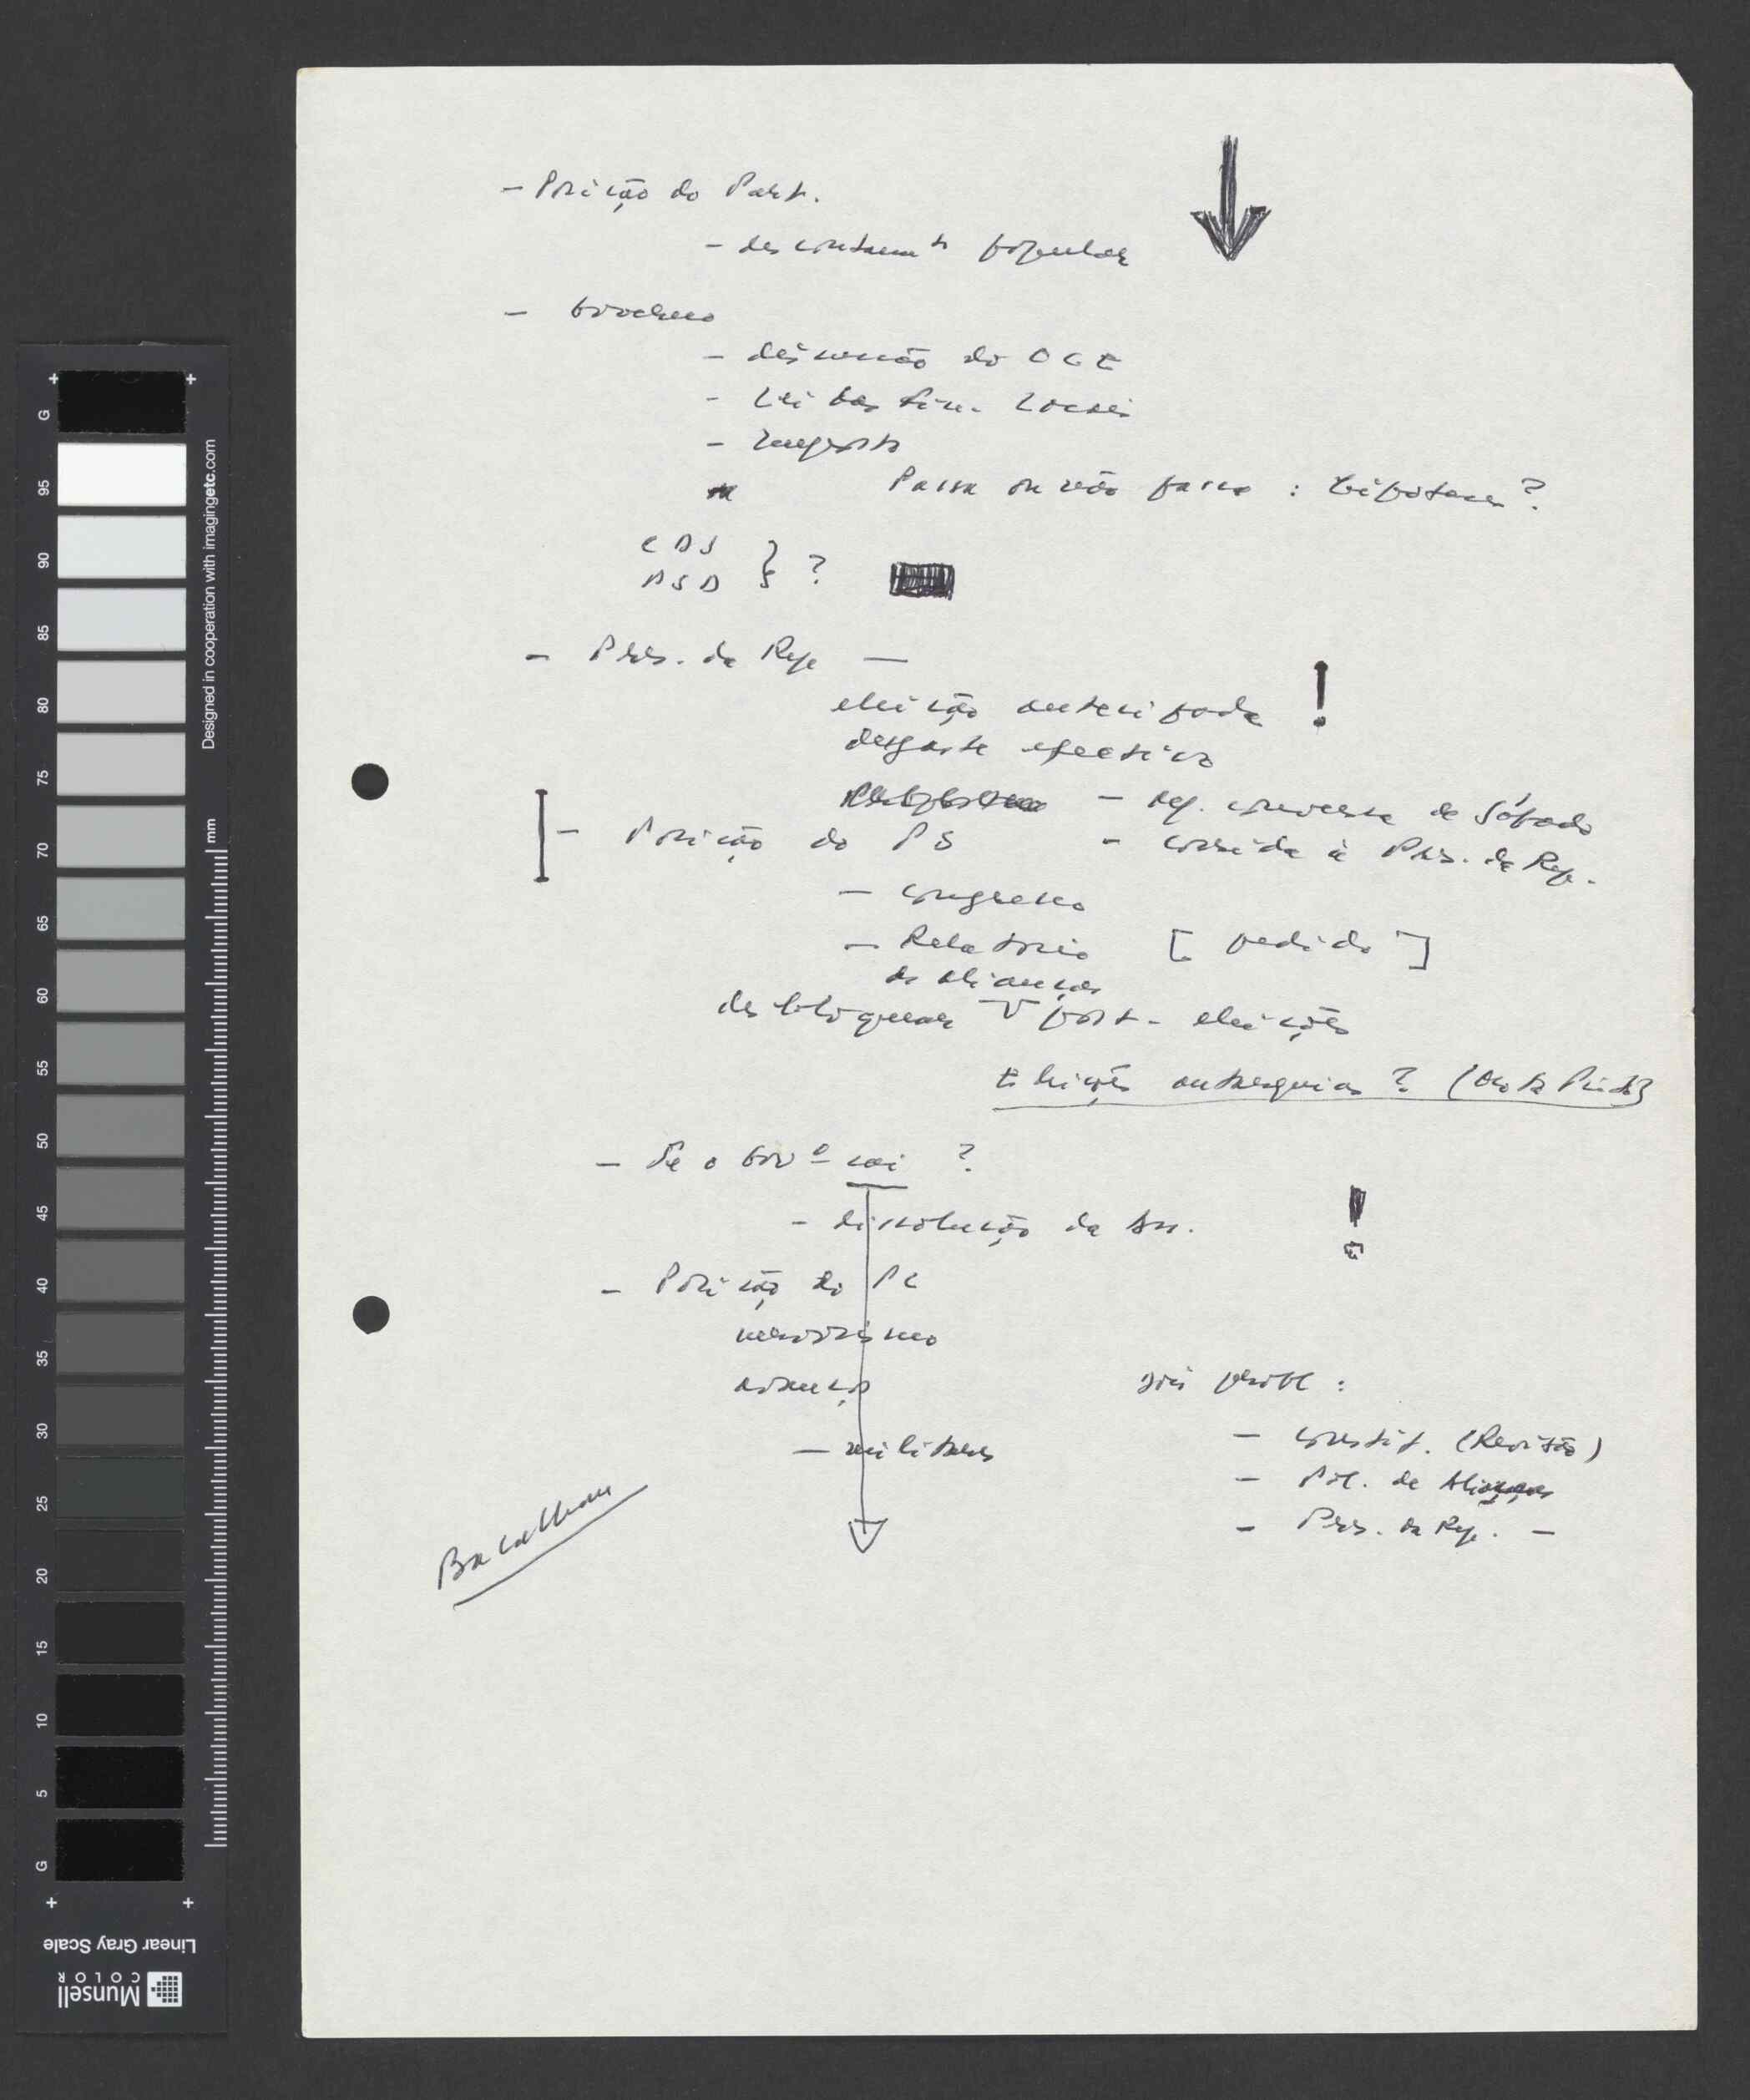 - Posição do Part.
- descontentam to popular
- Governo
- discussão do OGE
- Lei das Fin. Locais
- Imposto
Passa ou não passa : hipoteses ?
CDS
PSD } ?
- Pres. da Rep —
eleição antecipada !
desgaste efectivo
- rep. conversa de Sábado
- Posição do PS
- corrida à Pres. da Rep.
- congresso
- Relatorio [ pedido ]
de alianças
desbloquear post-eleições
Eleições autarquias ? (Mota Pinto)
- Se o Govº cai ?
- dissolução da Ass. !
- Posição do PC
nervosismo
- militares
dois probl :
- Constit. (Revisão)
- Pol. de Alianças
- Pres. da Rep. -
Bacalhau
G 95 90 85 80 75 70 65 60 55 50 45 40 35 30 25 20 15 10 5 G
mm
Designed in cooperation with imagingetc.com
Linear Gray Scale
Munsell
COLOR